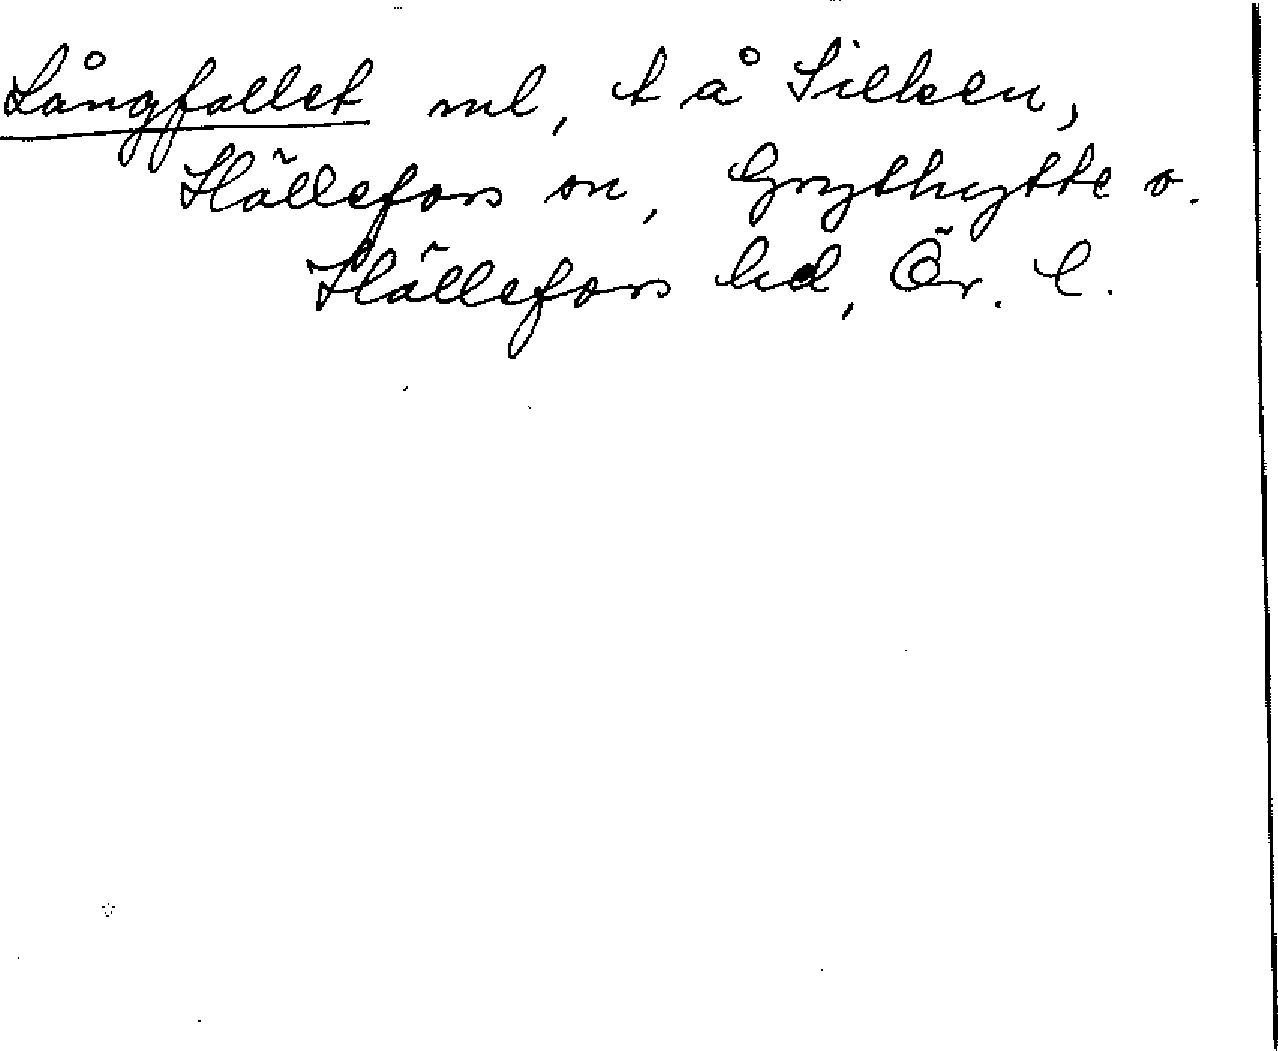 Långfallet ml, t å Silken,
Hällefors sn, Grythytte o.
Hällefors bd, Ör. l.